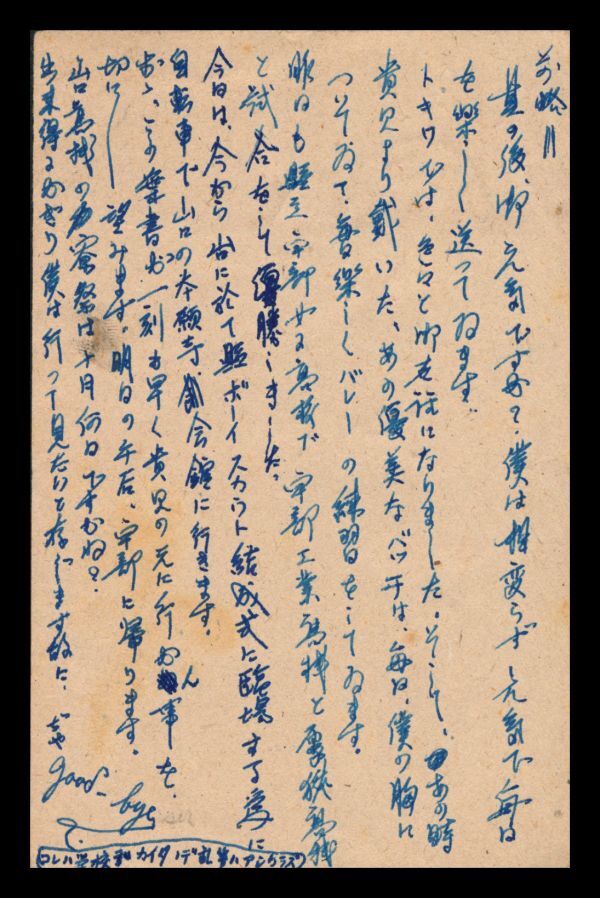 前略
其の後、御元気ですか?僕は相変らず元気で毎日
を楽しく送ってゐます。
トキワでは、色々と御世話になりました。そして、あの時
貴兄より戴いた、あの優美なバッチは、毎日、僕の胸に
ついてゐて、毎日楽しくバレーの練習をしてゐます。
昨日も県立宇部女子高校で宇部工業高校と厚狭高校
と試合をして優勝しました。
今日は、今から山口に於て県ボーイスカウト結成式に臨場する為に
自転車で山口の本願寺会館に行きます。
が、この葉書が一刻も早く貴兄の元に行かん事を、
切に望みます。明日の午后、宇部に帰ります。
山口高校の寮祭は十月何日ですかね?
出来得るかぎり僕は行って見たいと存じます故に、じゃ
good-bye
(コレハ学校デカイタノデ乱筆ハアシカラズ)